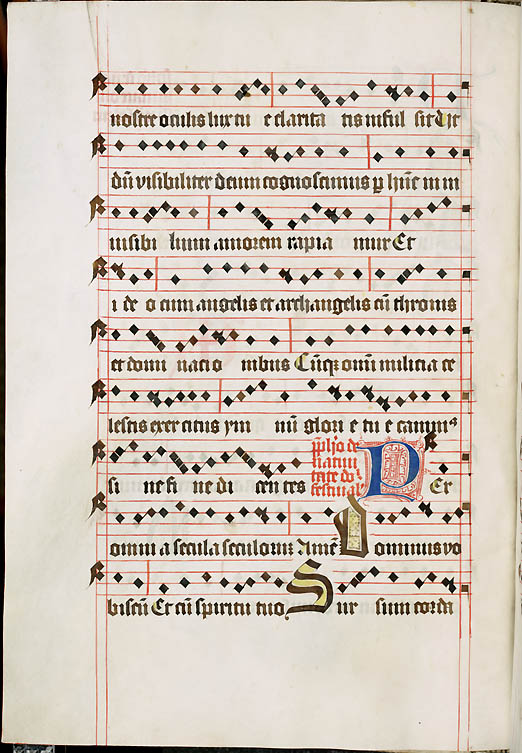 nostre oculis lux tu e clarita tis inful sit Ut
dū visibiliter deum cognoscimus p hūc in in
uisibi lium amorem rapia mur Et
i de o cum angelis et archangelis cū thronis
et domi nacio nibus Cūqꝫ omī milicia ce
lestis exercitus ym nū glorie tue canim⁹
si ne fi ne di centes
natiui
P Er
omnia secula seculorū Amē Dominus vo
biscū Et cū spiritu tuo Sur sum corda